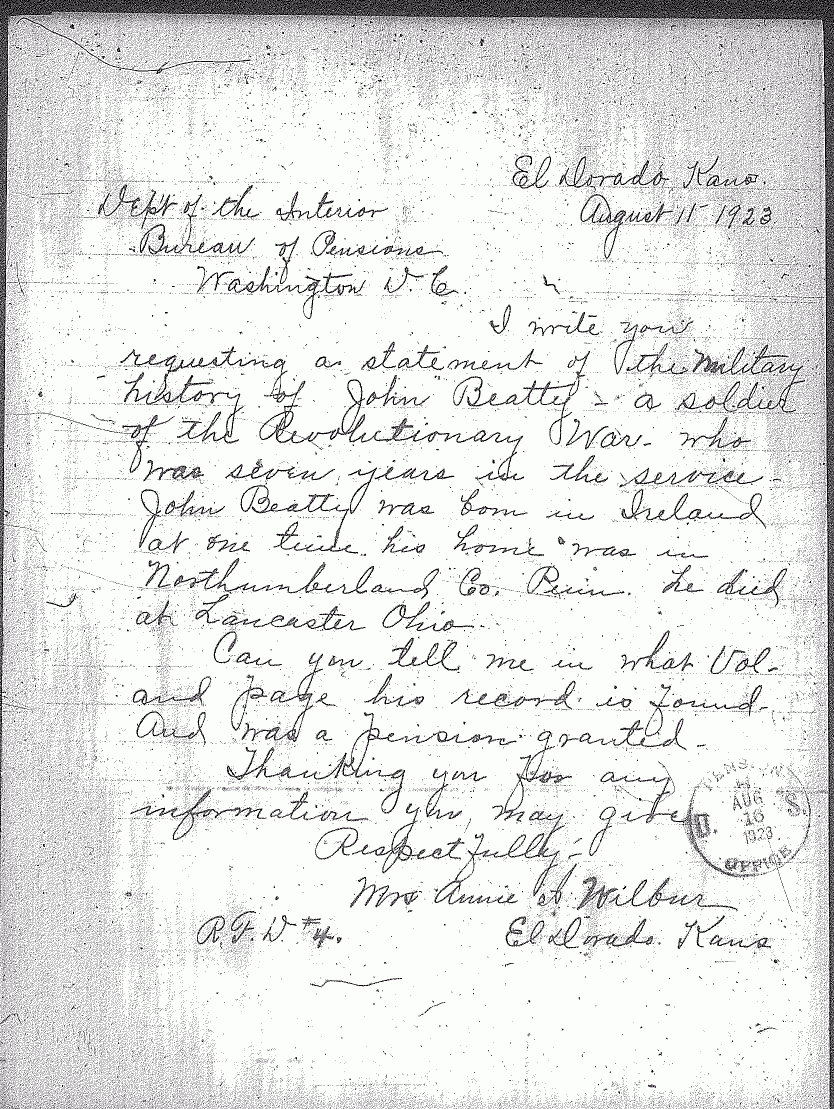 El Dorado Kans.
August 11 1923
Dept of the Interior
Bureau of Pensions
Washington D. C.
I write you
requesting a statement of the Military
history of John Beatty - a soldier
of the Revolutionary War - who
was seven years in the service -
John Beatty was born in Ireland
at one time his home was in
Northumberland Co. Penn. he died
at Lancaster Ohio.
Can you tell me in what Vol-
and page his record is found.
And was a pension granted -
Thanking you for any
information you may give
Respectfully -
Mrs Annie A Wilbur
R.F.D #4.
El Dorado. Kans
PENSION
U. S.
AUG
16
1923
OFFICE